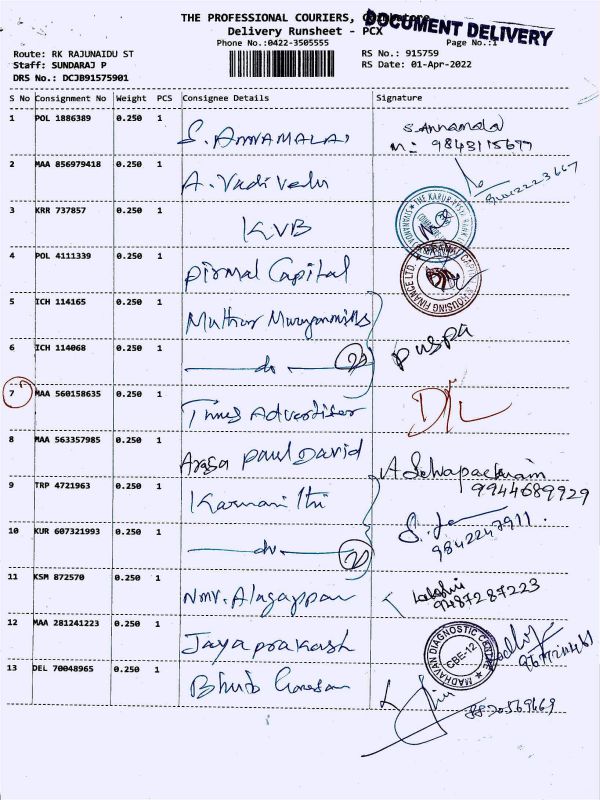 THE PROFESSIONAL COURIERS, Coimbatore
DOCUMENT DELIVERY
Delivery Runsheet - PCX
Phone No.:0422-3505555 Page No.:1
Route: RK RAJUNAIDU ST RS No.: 915759
Staff: SUNDARAJ P RS Date: 01-Apr-2022
DRS No.: DCJB91575901
S No Consignment No Weight PCS Consignee Details Signature
1 POL 1886389 0.250 1 S. ANNAMALAI S. Annamalai
M: 9843115677
2 MAA 856979418 0.250 1 A. Vadivelu
3 KRR 737857 0.250 1 KVB
4 POL 4111339 0.250 1 Pirmal Capital
HOUSING FINANCE LTD.
5 ICH 114165 0.250 1 Muthur
6 ICH 114068 0.250 1 do 2 puspa
7 MAA 560158635 0.250 1 Times Advertiser D/L
8 MAA 563357985 0.250 1 Arasa Paul David
9 TRP 4721963 0.250 1 9944689929
10 KUR 607321993 0.250 1 do 2 9842247911
11 KSM 872570 0.250 1 Alagappan Lakshmi
9487287223
12 MAA 281241223 0.250 1 Jayaprakash MADHAVAN DIAGNOSTIC CENTRE CBE-12
13 DEL 70048965 0.250 1 Ganesan